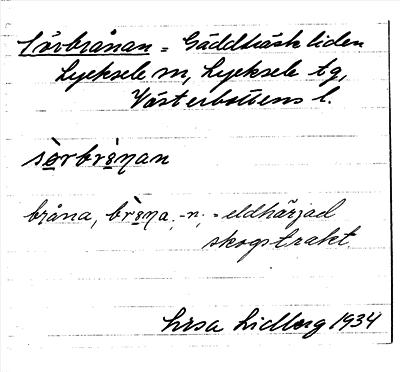 Sörbrånan = Gäddträskliden
Lycksele sn, Lycksele tg,
Västerbottens l.
sö̀rbrå̀nan
bråna, brå̀na, -n, = eldhärjad
skogstrakt.
Lisa Lidberg 1934